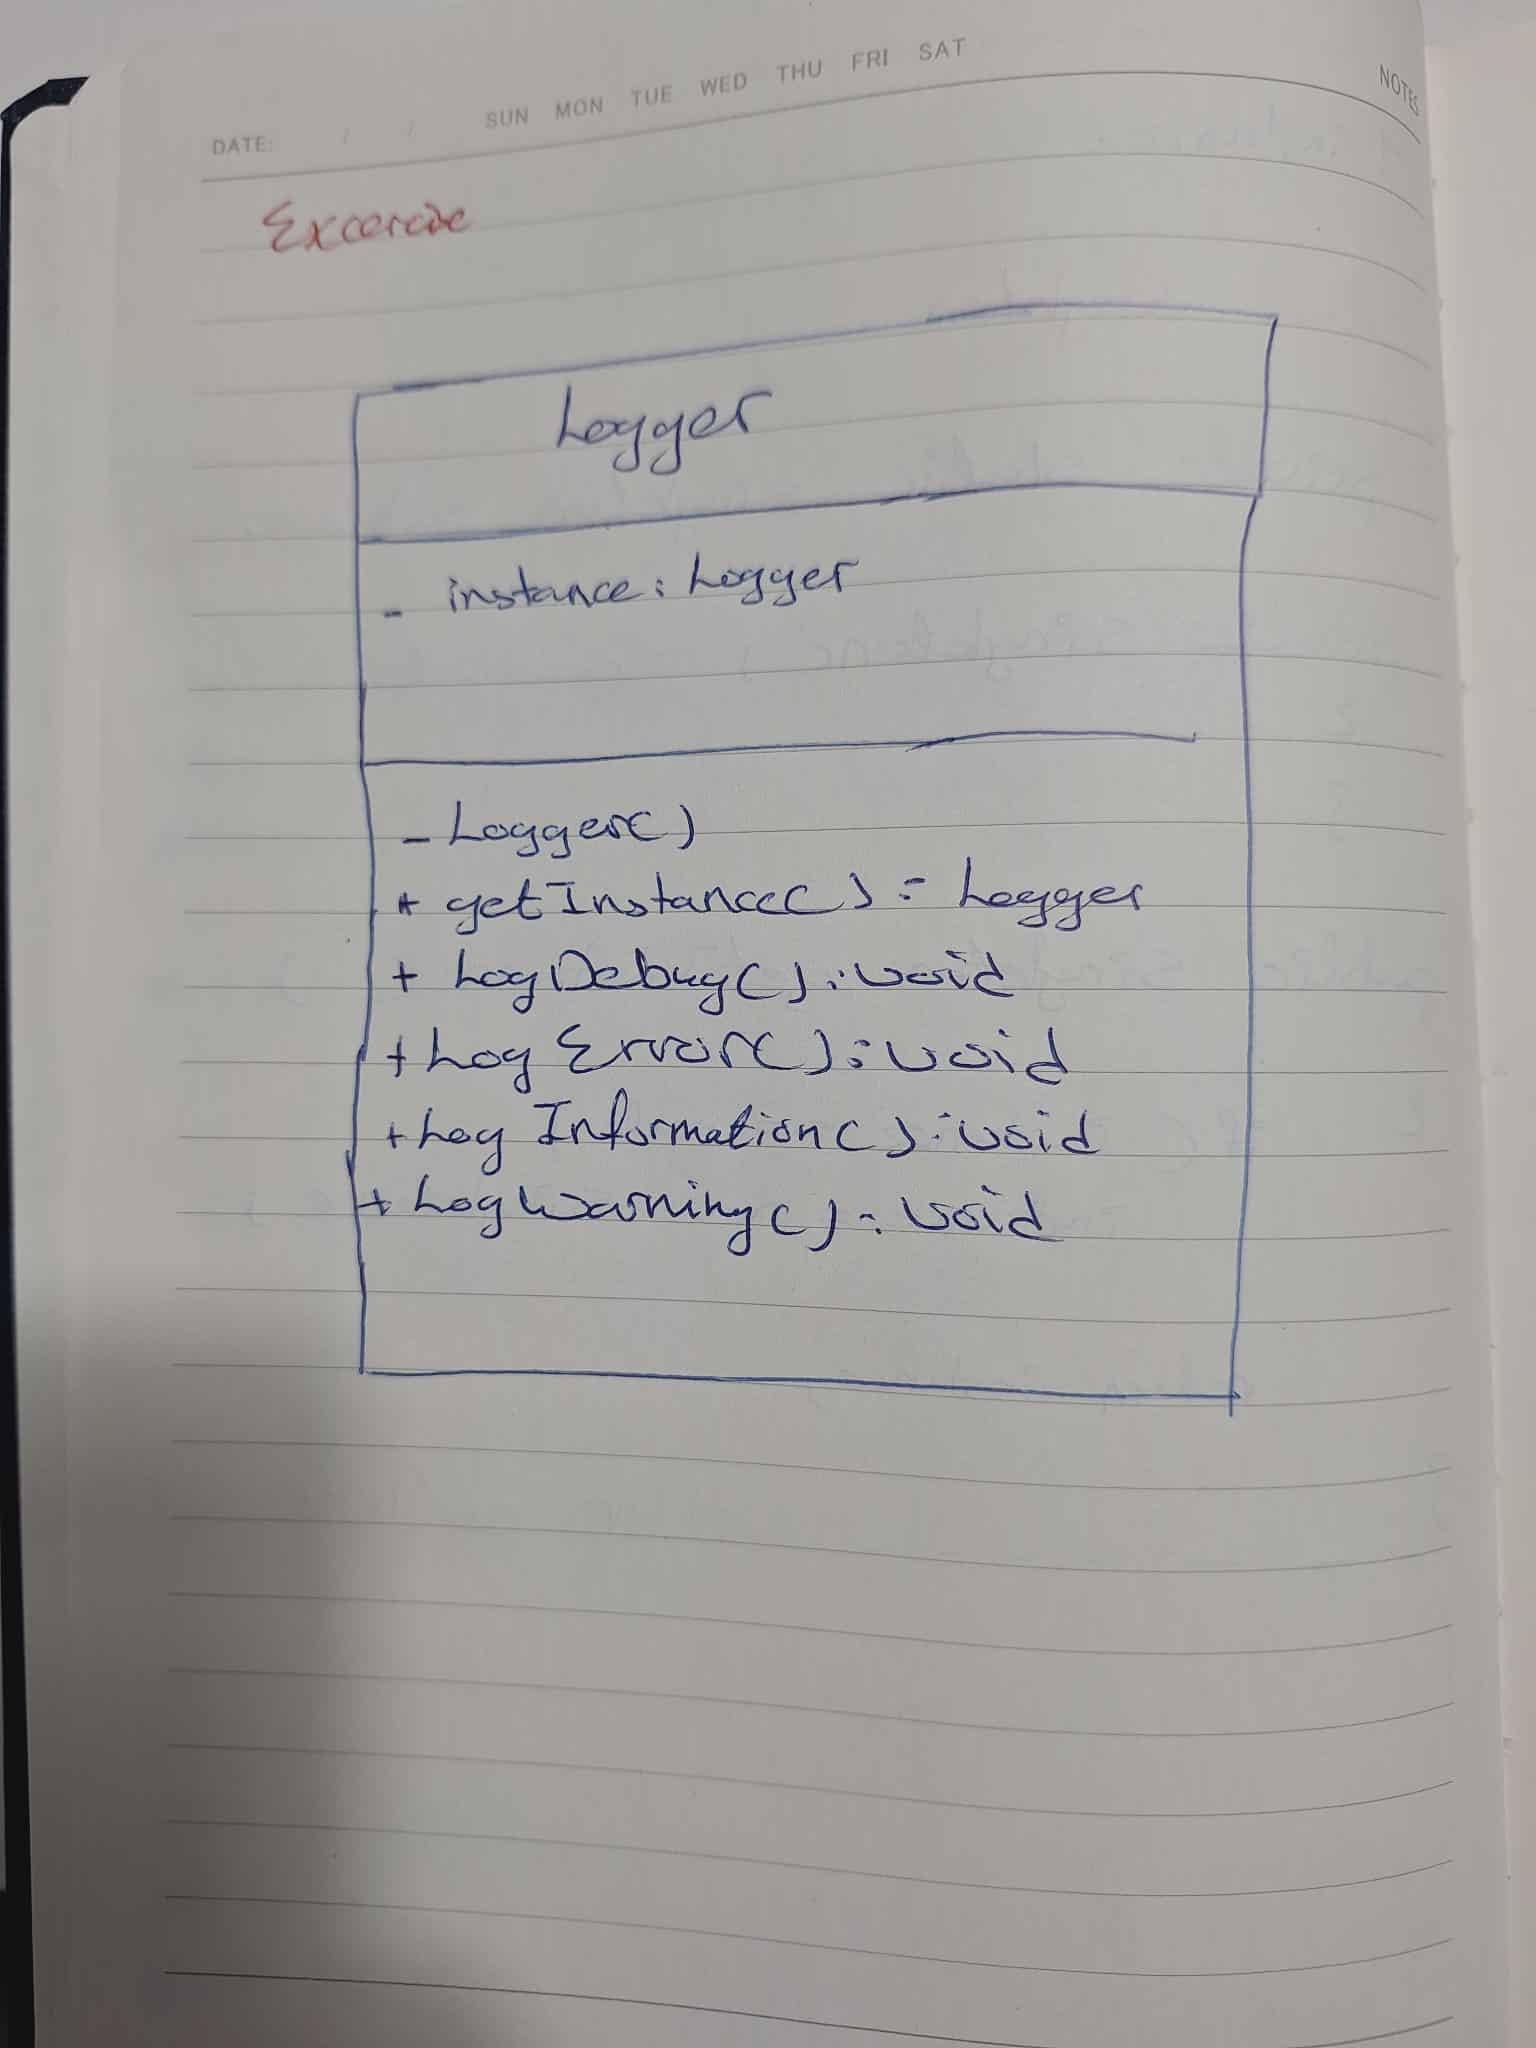 DATE: / / SUN MON TUE WED THU FRI SAT
NOTES
Logger
- instance: Logger
- Logger()
+ getInstance() : Logger
+ LogDebug() : void
+ Log Error() : void
+ Log Information() : void
+ LogWarning() : void